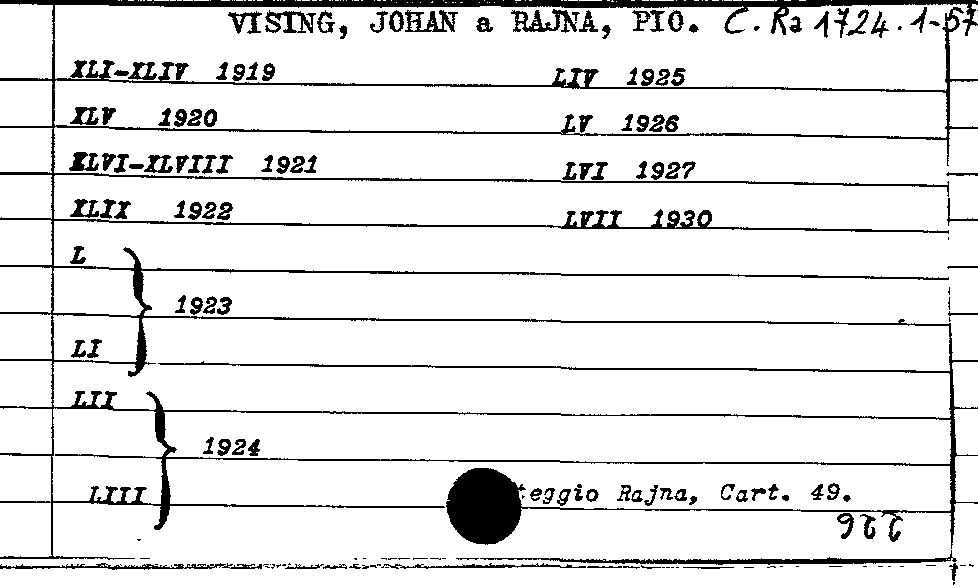 VISING, JOHAN a RAJNA, PIO. C. Ra 1724. 1-57
XLI-XLIV 1919
XLV 1920
XLVI-XLVIII 1921
XLIX 1922
L
1923
LI
LII
1924
LIII
LIV 1925
LV 1926
LVI 1927
LVII 1930
teggio Rajna, Cart. 49.